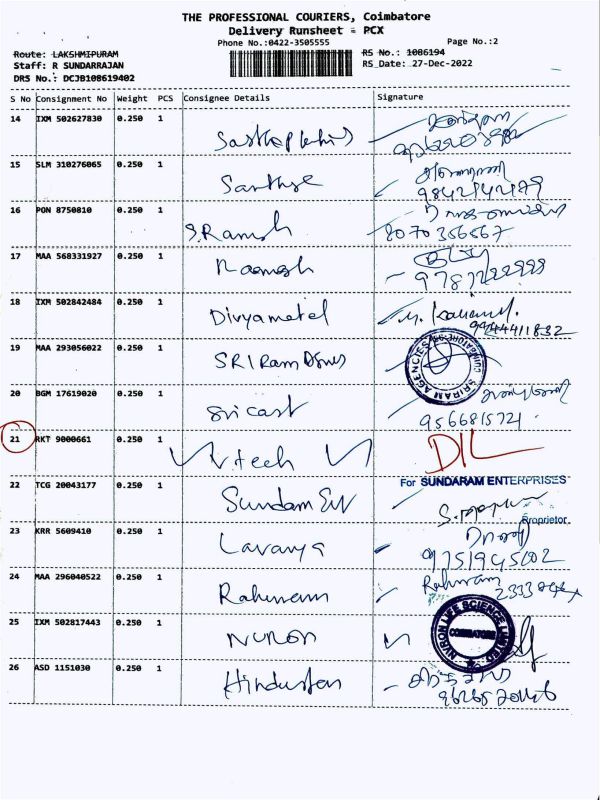 THE PROFESSIONAL COURIERS, Coimbatore
Delivery Runsheet - PCX
Phone No.:0422-3505555 Page No.:2
Route: LAKSHMIPURAM RS No.: 1086194
Staff: R SUNDARRAJAN RS_Date: 27-Dec-2022
DRS No.: DCJB108619402
S No Consignment No Weight PCS Consignee Details Signature
14 IXM 502627830 0.250 1
15 SLM 310276065 0.250 1 Santhye
9842142199
16 PON 8750810 0.250 1 S.Ramesh
8070356567
17 MAA 568331927 0.250 1 Ramesh
18 IXM 502842484 0.250 1 Divyametal
9244411832
19 MAA 293056022 0.250 1 SRI Ram Dsnes SRIRAM AGENCIES COIMBATORE
20 BGM 17619020 0.250 1 Sricast
9566815721
21 RKT 9000661 0.250 1 V.tech DIL
22 TCG 20043177 0.250 1 Sundam Ent For SUNDARAM ENTERPRISES
Proprietor
23 KRR 5609410 0.250 1 Lavanya
9751945602
24 MAA 296040522 0.250 1 Rahmam
25 IXM 502817443 0.250 1 NURON NURON LIFE SCIENCE LIMITED COIMBATORE
26 ASD 1151030 0.250 1 Hindustan